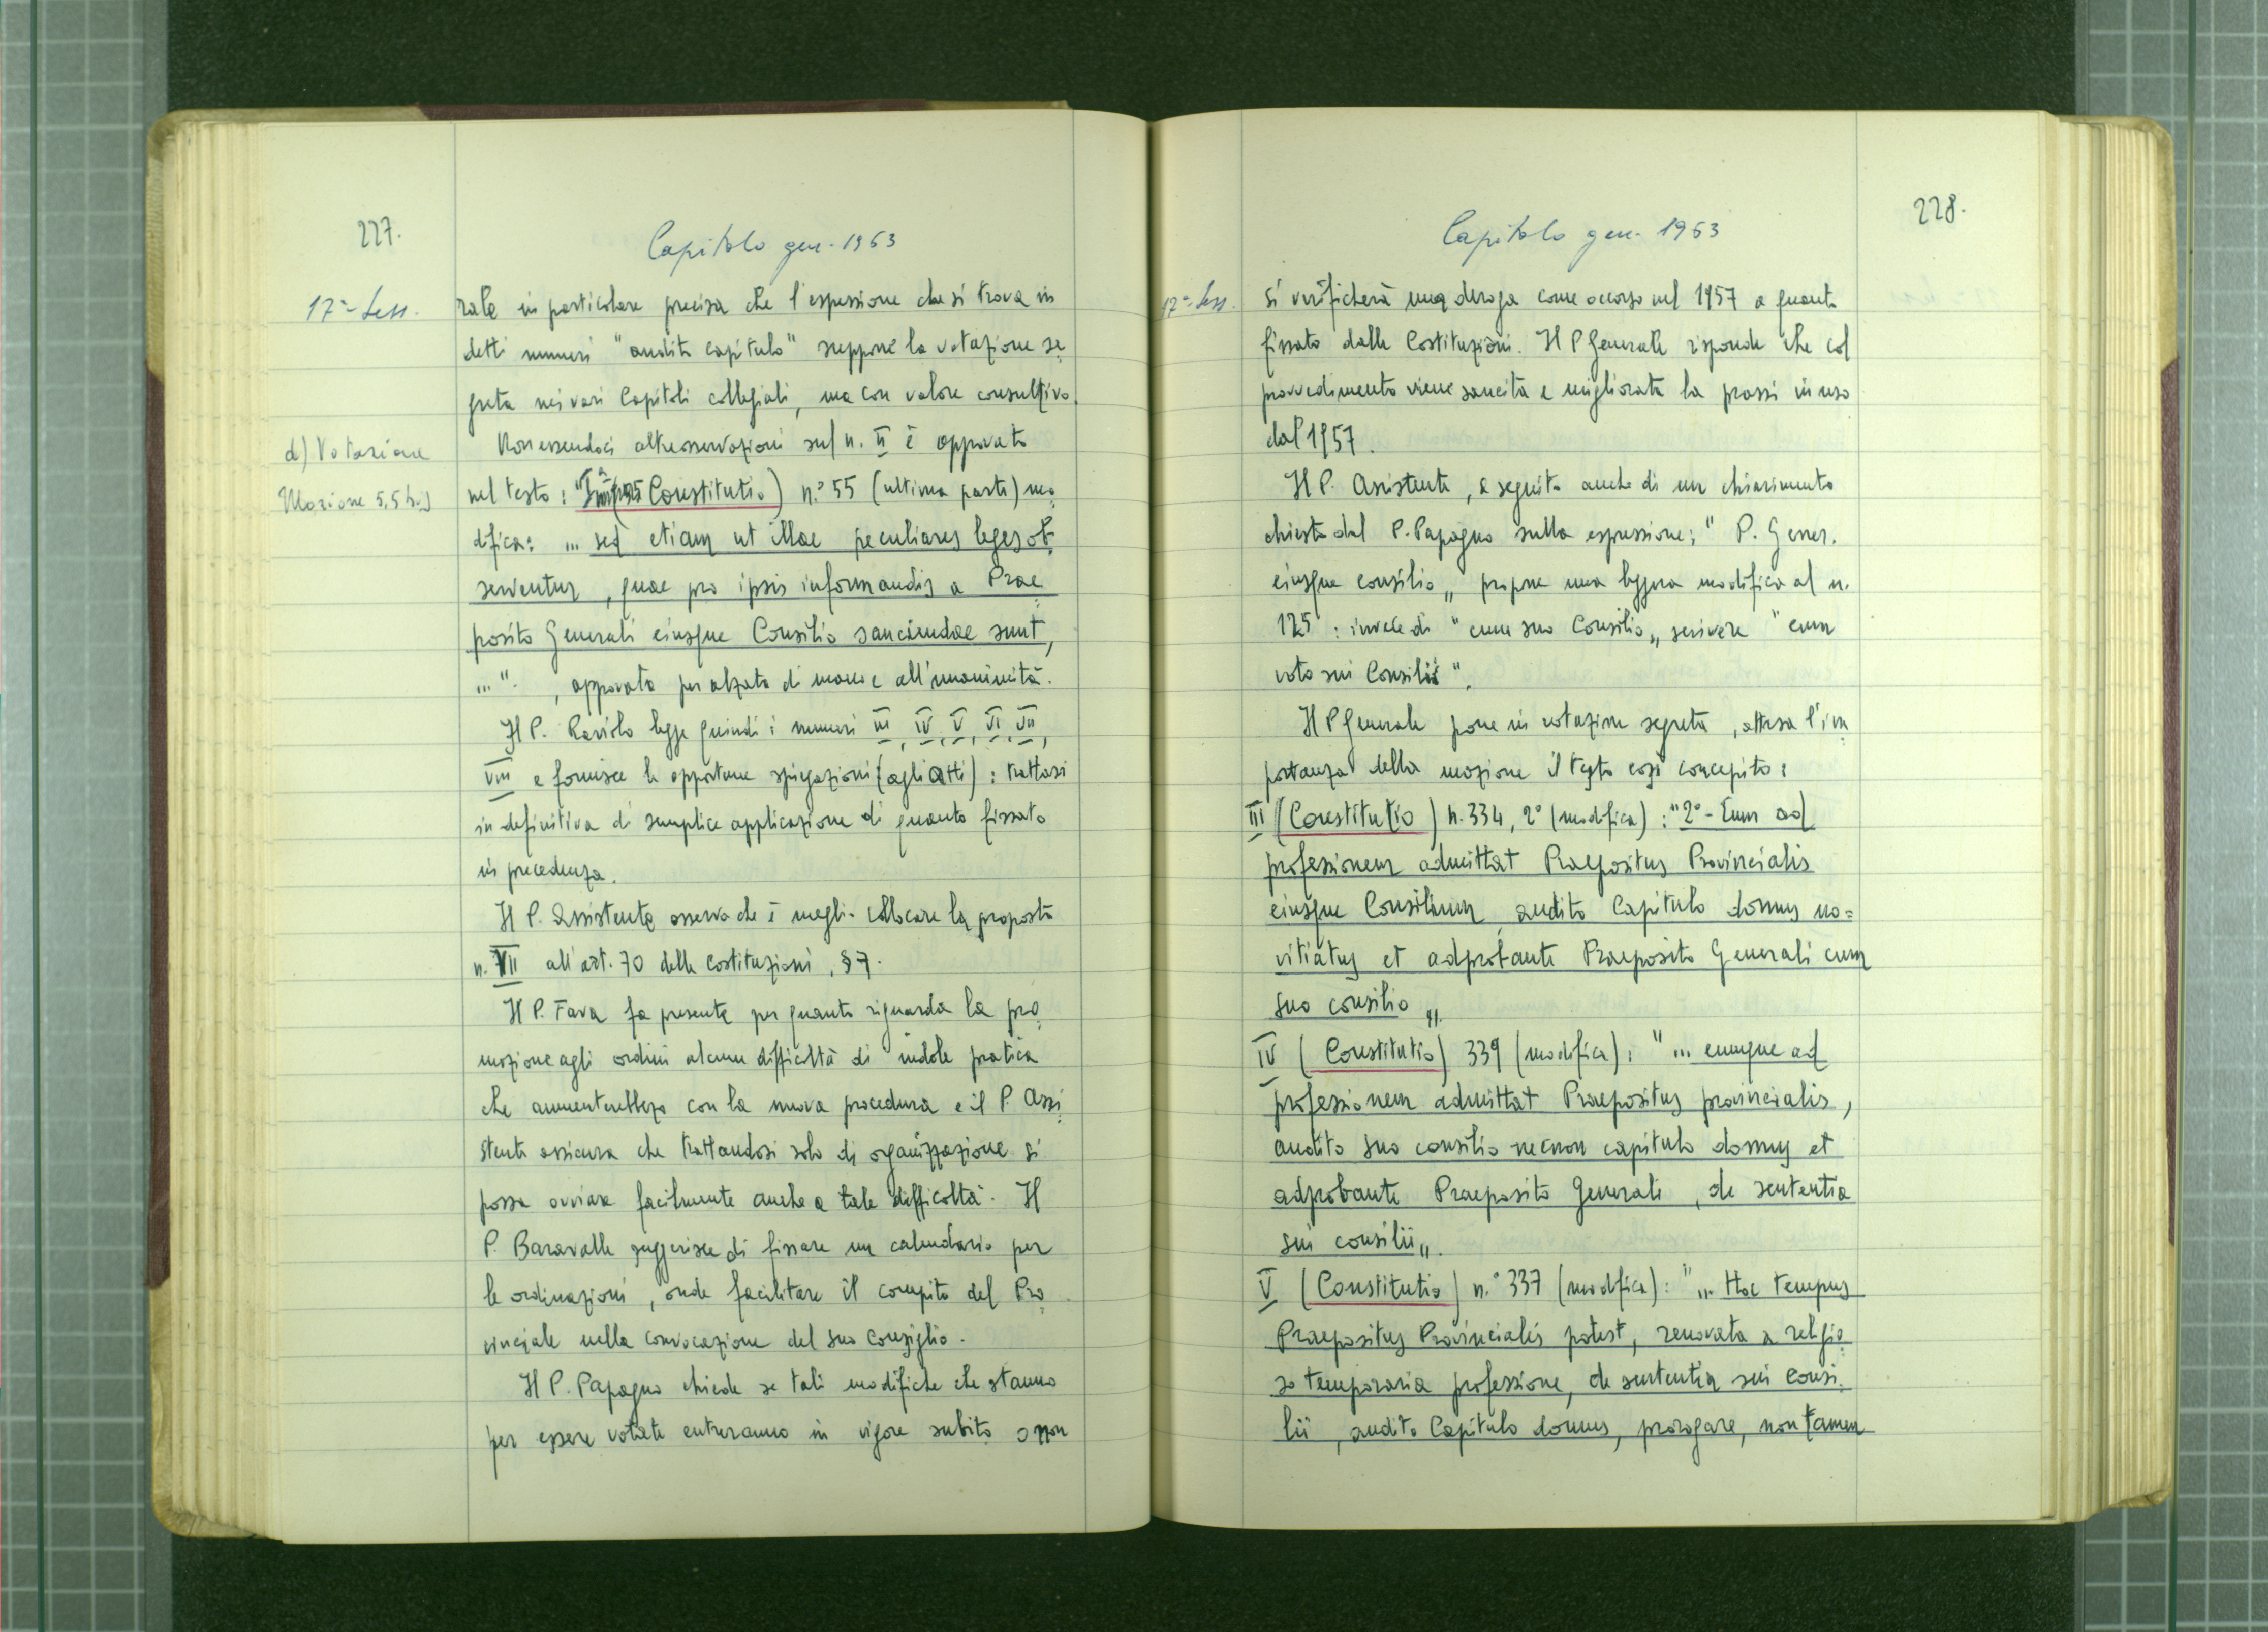 227.
Capitolo gen. 1963
17ª Sess.
rale in particolare precisa che l'espressione che si trova in
detti numeri "audito capitulo" suppone la votazione se
greta nei vari Capitoli collegiali, ma con valore consultivo.
d) Votazione
Non essendoci altre osservazioni sul n. II è approvato
Mozione 5,5
nel testo: (Constitutio) n.° 55 (ultima parte) mo
difica: ... sed etiam ut illae peculiares leges ob
serventur, quae pro ipsis informandis a Prae
posito Generali eiusque Consilio sanciendae sunt,
...". , approvato per alzata di mano e all'unanimità.
Il P. Raviolo legge quindi i numeri III, IV, V, VI, VII,
VIII e fornisce le opportune spiegazioni (agli Atti): trattasi
in definitiva di semplice applicazione di quanto fissato
in precedenza.
Il P. Assistente osserva che è meglio collocare la proposta
n. VII all'art. 70 delle Costituzioni, § 7.
Il P. Fava fa presente per quanto riguarda la pro
mozione agli ordini alcune difficoltà di indole pratica
che aumenterebbero con la nuova procedura e il P. Assi
stente assicura che trattandosi solo di organizzazione si
possa ovviare facilmente anche a tale difficoltà. Il
P. Baravalle suggerisce di fissare un calendario per
le ordinazioni, onde facilitare il compito del Pro
vinciale nella convocazione del suo Consiglio.
Il P. Papagno chiede se tali modifiche che stanno
per essere votate entreranno in vigore subito o non
228.
Capitolo gen. 1963
17ª Sess.
si verificherà una deroga come occorso nel 1957 a quanto
fissato dalle Costituzioni. Il P Generale risponde che col
provvedimento viene sancita e migliorata la prassi in uso
dal 1957.
Il P. Assistente, a seguito anche di un chiarimento
chiesto dal P. Papagno sulla espressione: " P. Gener.
eiusque consilio„ propone una leggera modifica al n.
125: invece di "cum suo Consilio„ scrivere "cum
voto sui Consilii".
Il P Generale pone in votazione segreta, attesa l'im
portanza della mozione il testo così concepito:
III (Constitutio) n. 334, 2° (modifica): "2° - Eum ad
professionem admittat Praepositus Provincialis
eiusque Consilium, audito Capitulo domus no=
vitiatus et adprobante Praeposito Generali cum
suo consilio„.
IV (Constitutio) 339 (modifica): "... eumque ad
professionem admittat Praepositus provincialis,
audito suo consilio necnon capitulo domus et
adprobante Praeposito Generali, de sententia
sui consilii„.
V (Constitutio) n.° 337 (modifica): "... Hoc tempus
Praepositus Provincialis potest, renovata a religio
so temporaria professione, de sententia sui Consi
lii, audito Capitulo domus, prorogare, non tamen